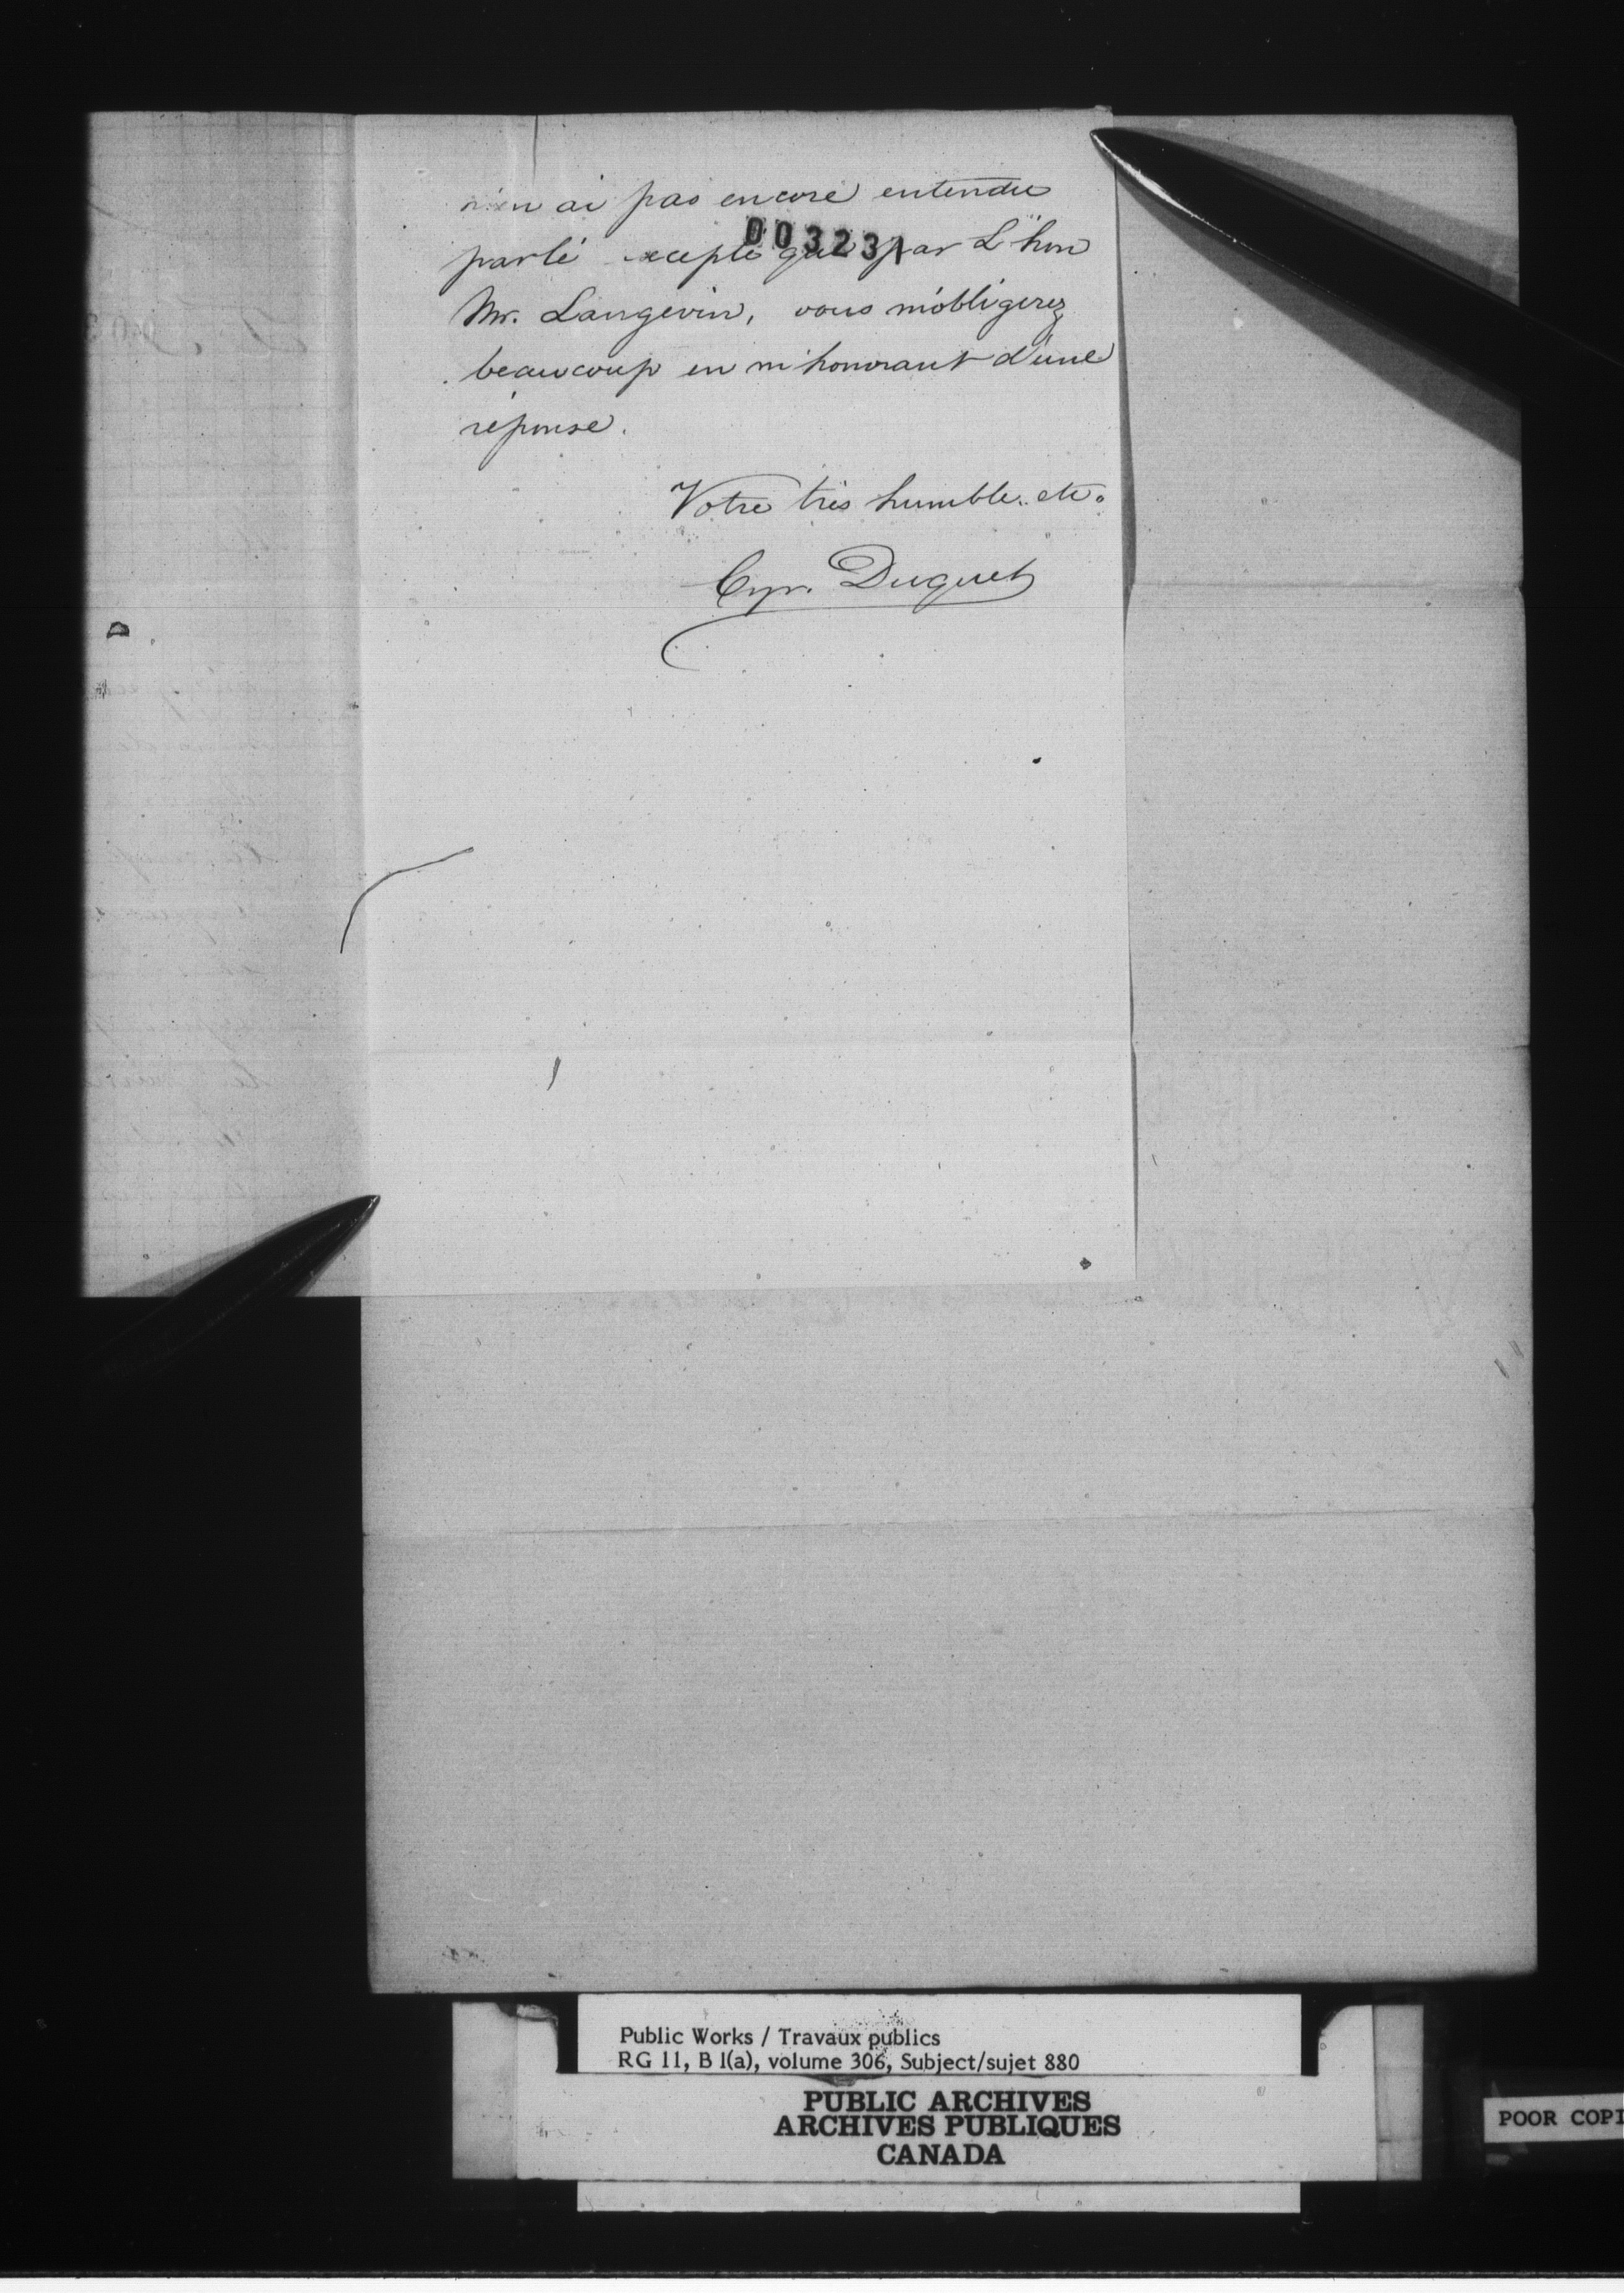 n'en ai pas encore entendu
003231
parlé excepté que par L'hon
Mr. Langevin, vous m'obligerez
beaucoup en m'honorant d'une
réponse.
Votre très humble. etc.
Cyr. Duquet
Public Works / Travaux publics
RG 11, B 1(a), volume 306, Subject/sujet 880
PUBLIC ARCHIVES
ARCHIVES PUBLIQUES
CANADA
POOR COPI